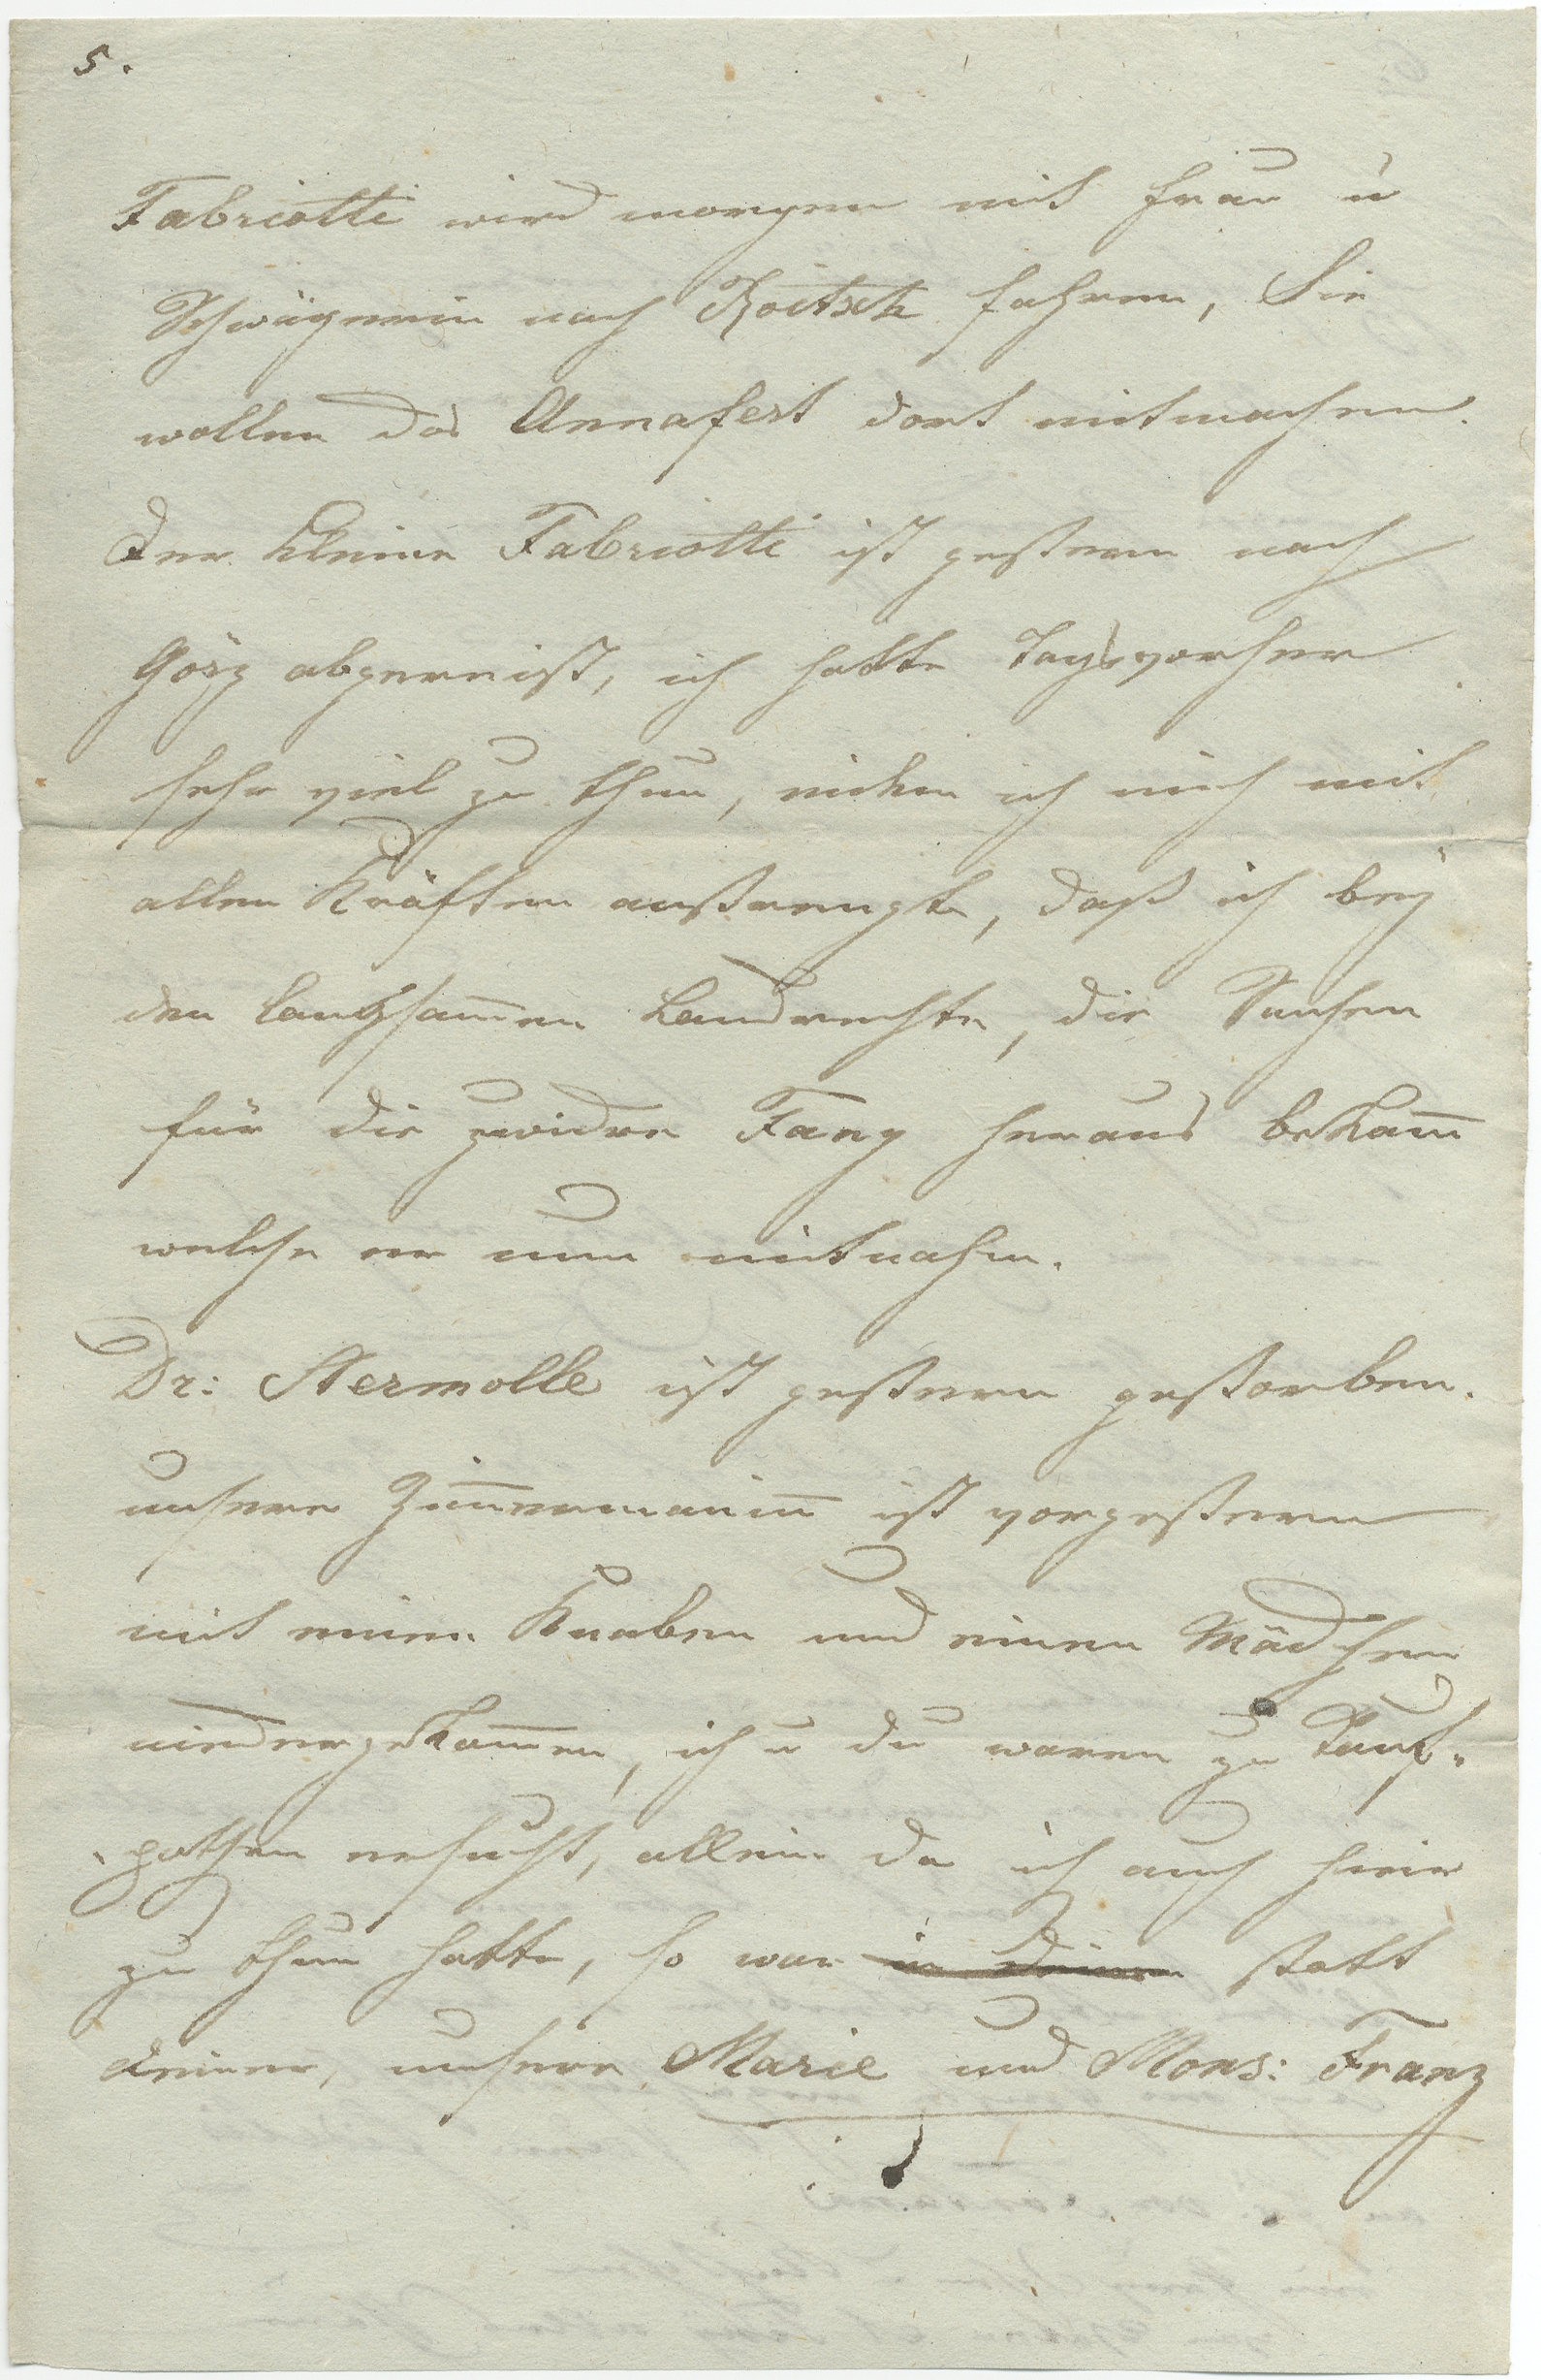 5.
Fabriotti wird morgen mit Frau u
Schwägerin nach Roitsch fahren, Sie
wollen das Annafest dort mitmachen.
Der kleine Fabriotti ist gestern nach
Görz abgereist, ich hatte Tagsvorher
sehr viel zu thun, indem ich mich mit
allen Kräften anstrengte, daß ich bey
den langsamen Landrechte, die Sachen
für die zwidre Fany heraus bekam̄
welche er nun mitnahm.
Dr: Stermolle ist gestern gestorben.
unsere Zim̄ermanin̄ ist vorgestern
mit einen Knaben und einen Mädchen
niedergekom̄en, ich u du waren zu Tauf-
pathen ersucht, allein da ich auch hier
zu thun hatte, so war statt
deiner, unsere Marie und Mons: Franz